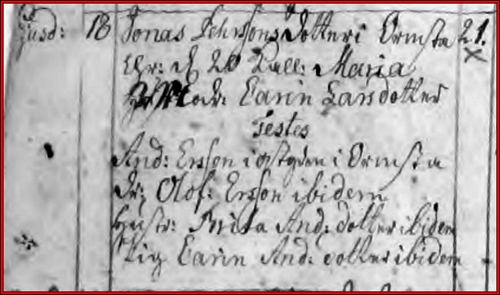 dijusd: 18 Jonas Ehrssons dotter i Ormsta 21.
Chr: d 20 Kall: Maria
Mod: Carin Larsdotter
Testes
And: Ersson i östgården i Ormsta
dr: Olof: Ersson ibidem
Hustr: Brita And: dotter ibidem
Pig Carin And: dotter ibidem